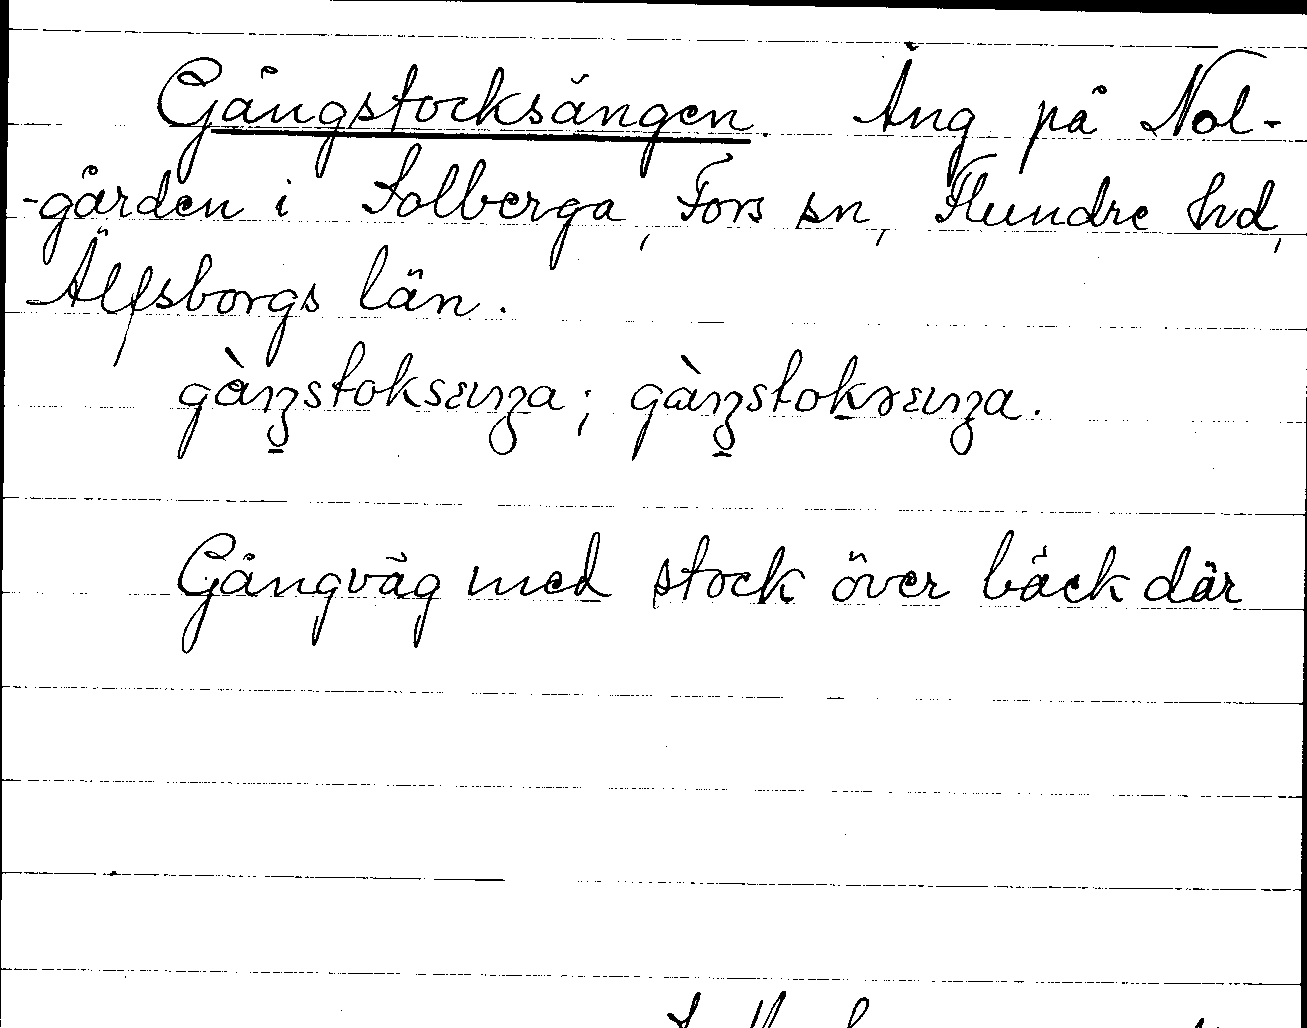 Gångstocksängen. Äng på Nol-
-gården i Solberga, Fors sn, Flundre hd,
Älfsborgs län.
Gångväg med stock över bäck där